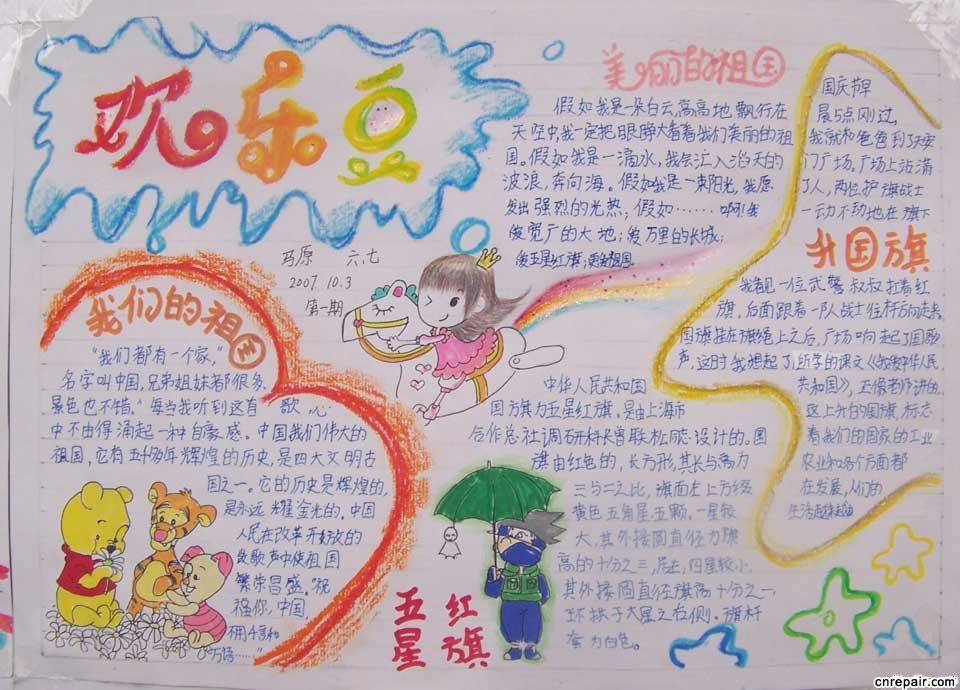 欢乐豆
马原 六.七
2007.10.3
第一期
美丽的祖国
假如我是一朵白云,高高地飘行在
天空中,我一定把眼睁大看着我们美丽的祖
国。假如我是一滴水,我会汇入滔天的
波浪,奔向海。假如我是一束阳光,我愿
发出强烈的光热;假如……啊!我
爱宽广的大地;爱万里的长城;
爱五星红旗;更爱祖国.
国庆节早
晨5点刚过,
我就和爸爸到了天安
门广场。广场上站满
了人,两位护旗战士
一动不动地在旗下
升国旗
我看见一位武警叔叔扛着红
旗,后面跟着一队战士往杆方向走来,
国旗挂在旗绳上之后,广场响起了国歌
声,这时我想起了所学的课文《我爱中华人民
共和国》,正像老师讲的
这上升的国旗,标志
着我们的国家的工业
农业和各个方面都
在发展,人们的
生活越来越
我们的祖国
“我们都有一个家,
名字叫中国,兄弟姐妹都很多,
景色也不错。”每当我听到这首歌,心
中不由得涌起一种自豪感。中国我们伟大的
祖国,它有五千多年辉煌的历史,是四大文明古
国之一。它的历史是辉煌的,
是永远耀金光的。中国
人民在改革开放的
歌声中使祖国
繁荣昌盛。祝
福你,中国.
万语……”
五星红旗
中华人民共和国
国旗为五星红旗.是由上海市
合作总社调研科长曾联松同志设计的。国
旗由红色的,长方形,其长与高为
三与二之比,旗面左上方缀
黄色五角星五颗。一星较
大,其外接圆直径为旗
高的十分之三,居左,四星较小.
其外接圆直径旗高十分之一,
环拱于大星之右侧。旗杆
套为白色。
cnrepair.com